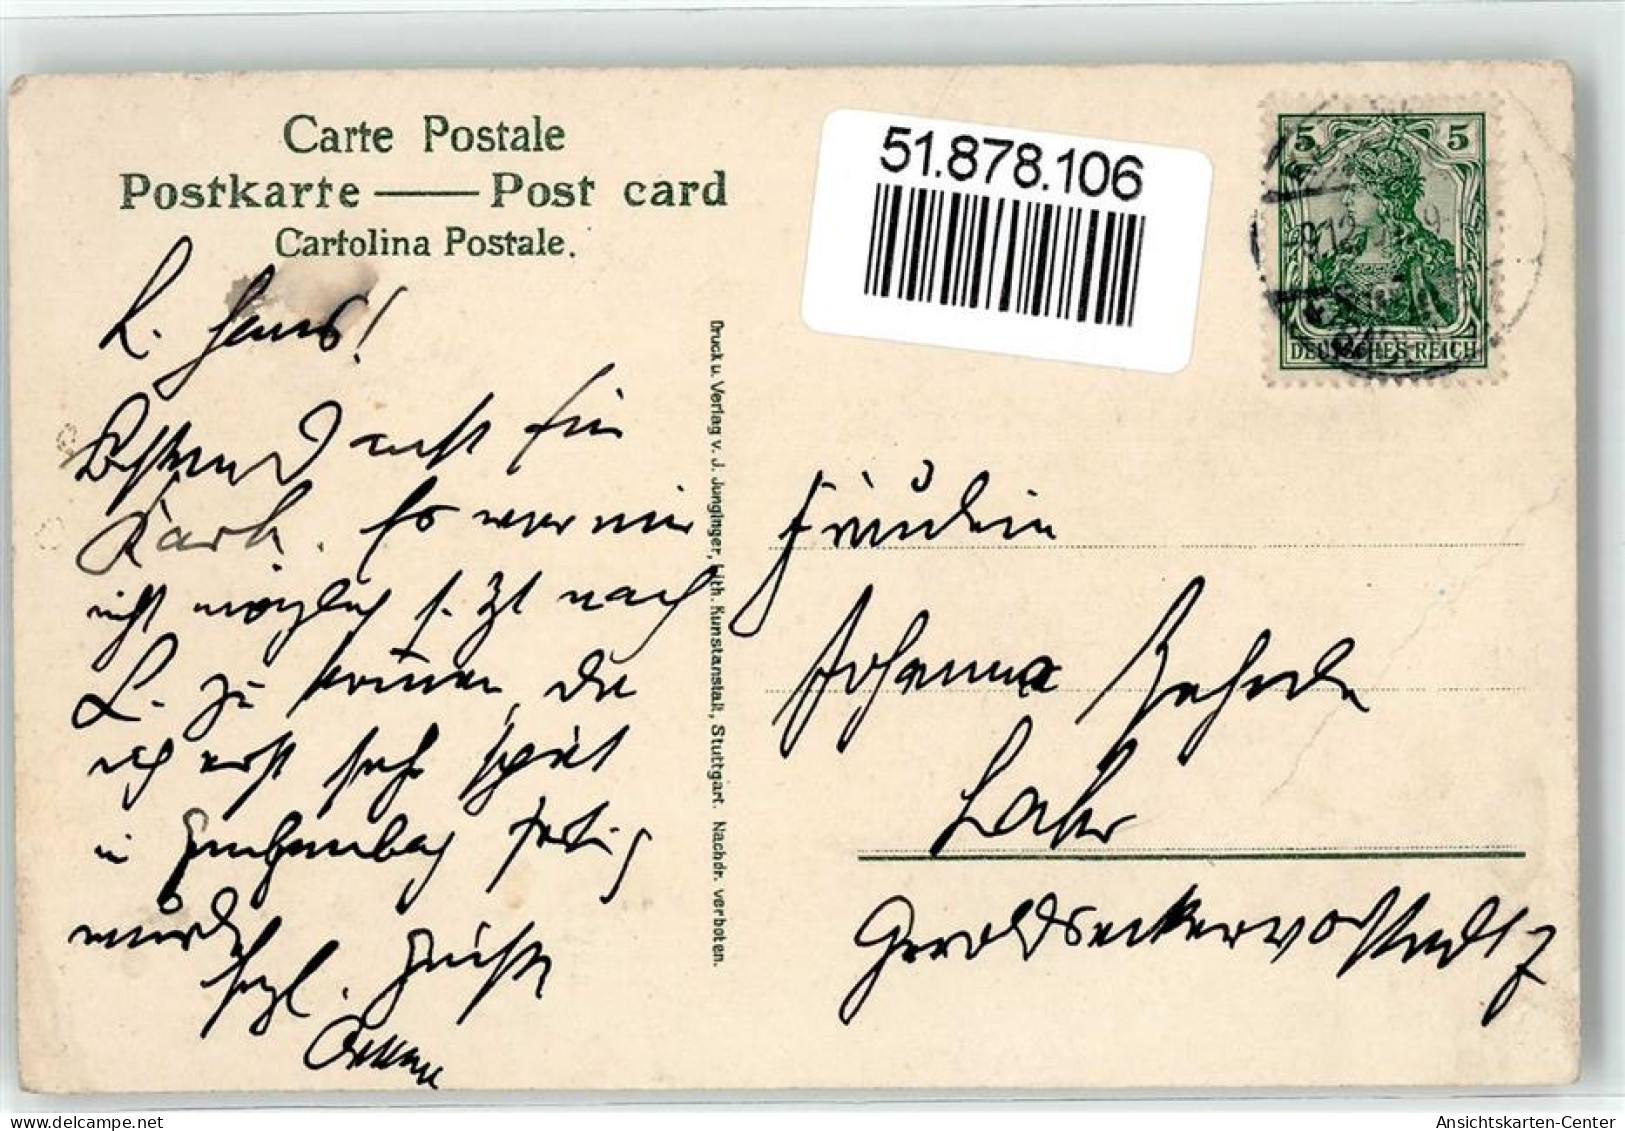 Carte Postale
Postkarte — Post card
Cartolina Postale.
51.878.106
5 5
DEUTSCHES REICH
Druck u. Verlag v. J. Junginger, Lith. Kunstanstalt, Stuttgart. Nachdr. verboten.
L. Hans!
Besten für
Karte. Es war mir
nicht möglich s. Zt nach
L. zu kommen, da
ich erst sehr spät
in fertig
würde
Herzl. Grüße
Fräulein
Johanna
Lahr
Geroldseckervorstadt 7
Ansichtskarten-Center